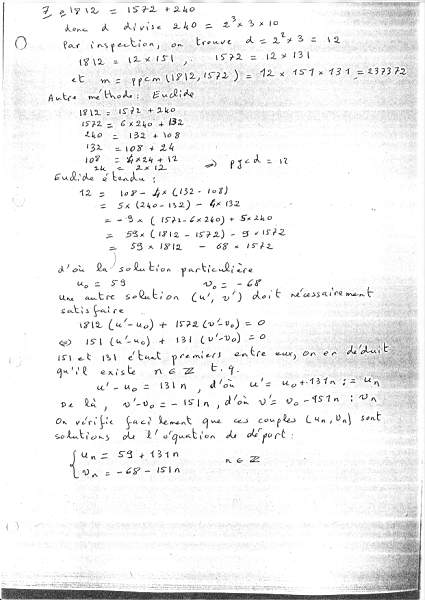 7. a 1812 = 1572 + 240
donc d divise 240 = 2³ × 3 × 10
Par inspection, on trouve d = 2² × 3 = 12
1812 = 12 × 151 , 1572 = 12 × 131
et m = ppcm (1812, 1572) = 12 × 151 × 131 = 237372
Autre méthode: Euclide
1812 = 1572 + 240
1572 = 6 × 240 + 132
240 = 132 + 108
132 = 108 + 24
108 = 4 × 24 + 12
24 = 2 × 12 ⇒ pgcd = 12
Euclide étendu :
12 = 108 - 4 × (132 - 108)
= 5 × (240 - 132) - 4 × 132
= - 9 × (1572 - 6 × 240) + 5 × 240
= 59 × (1812 - 1572) - 9 × 1572
= 59 × 1812 - 68 × 1572
d'où la solution particulière
u₀ = 59 v₀ = - 68
Une autre solution (u', v') doit nécessairement
satisfaire
1812 (u' - u₀) + 1572 (v' - v₀) = 0
⇔ 151 (u' - u₀) + 131 (v' - v₀) = 0
151 et 131 étant premiers entre eux, on en déduit
qu'il existe n ∈ ℤ t. q.
u' - u₀ = 131n , d'où u' = u₀ + 131n := uₙ
De là, v' - v₀ = - 151n , d'où v' = v₀ - 151n : vₙ
On vérifie facilement que ces couples (uₙ, vₙ) sont
solutions de l'équation de départ :
{ uₙ = 59 + 131n
{ vₙ = - 68 - 151n n ∈ ℤ